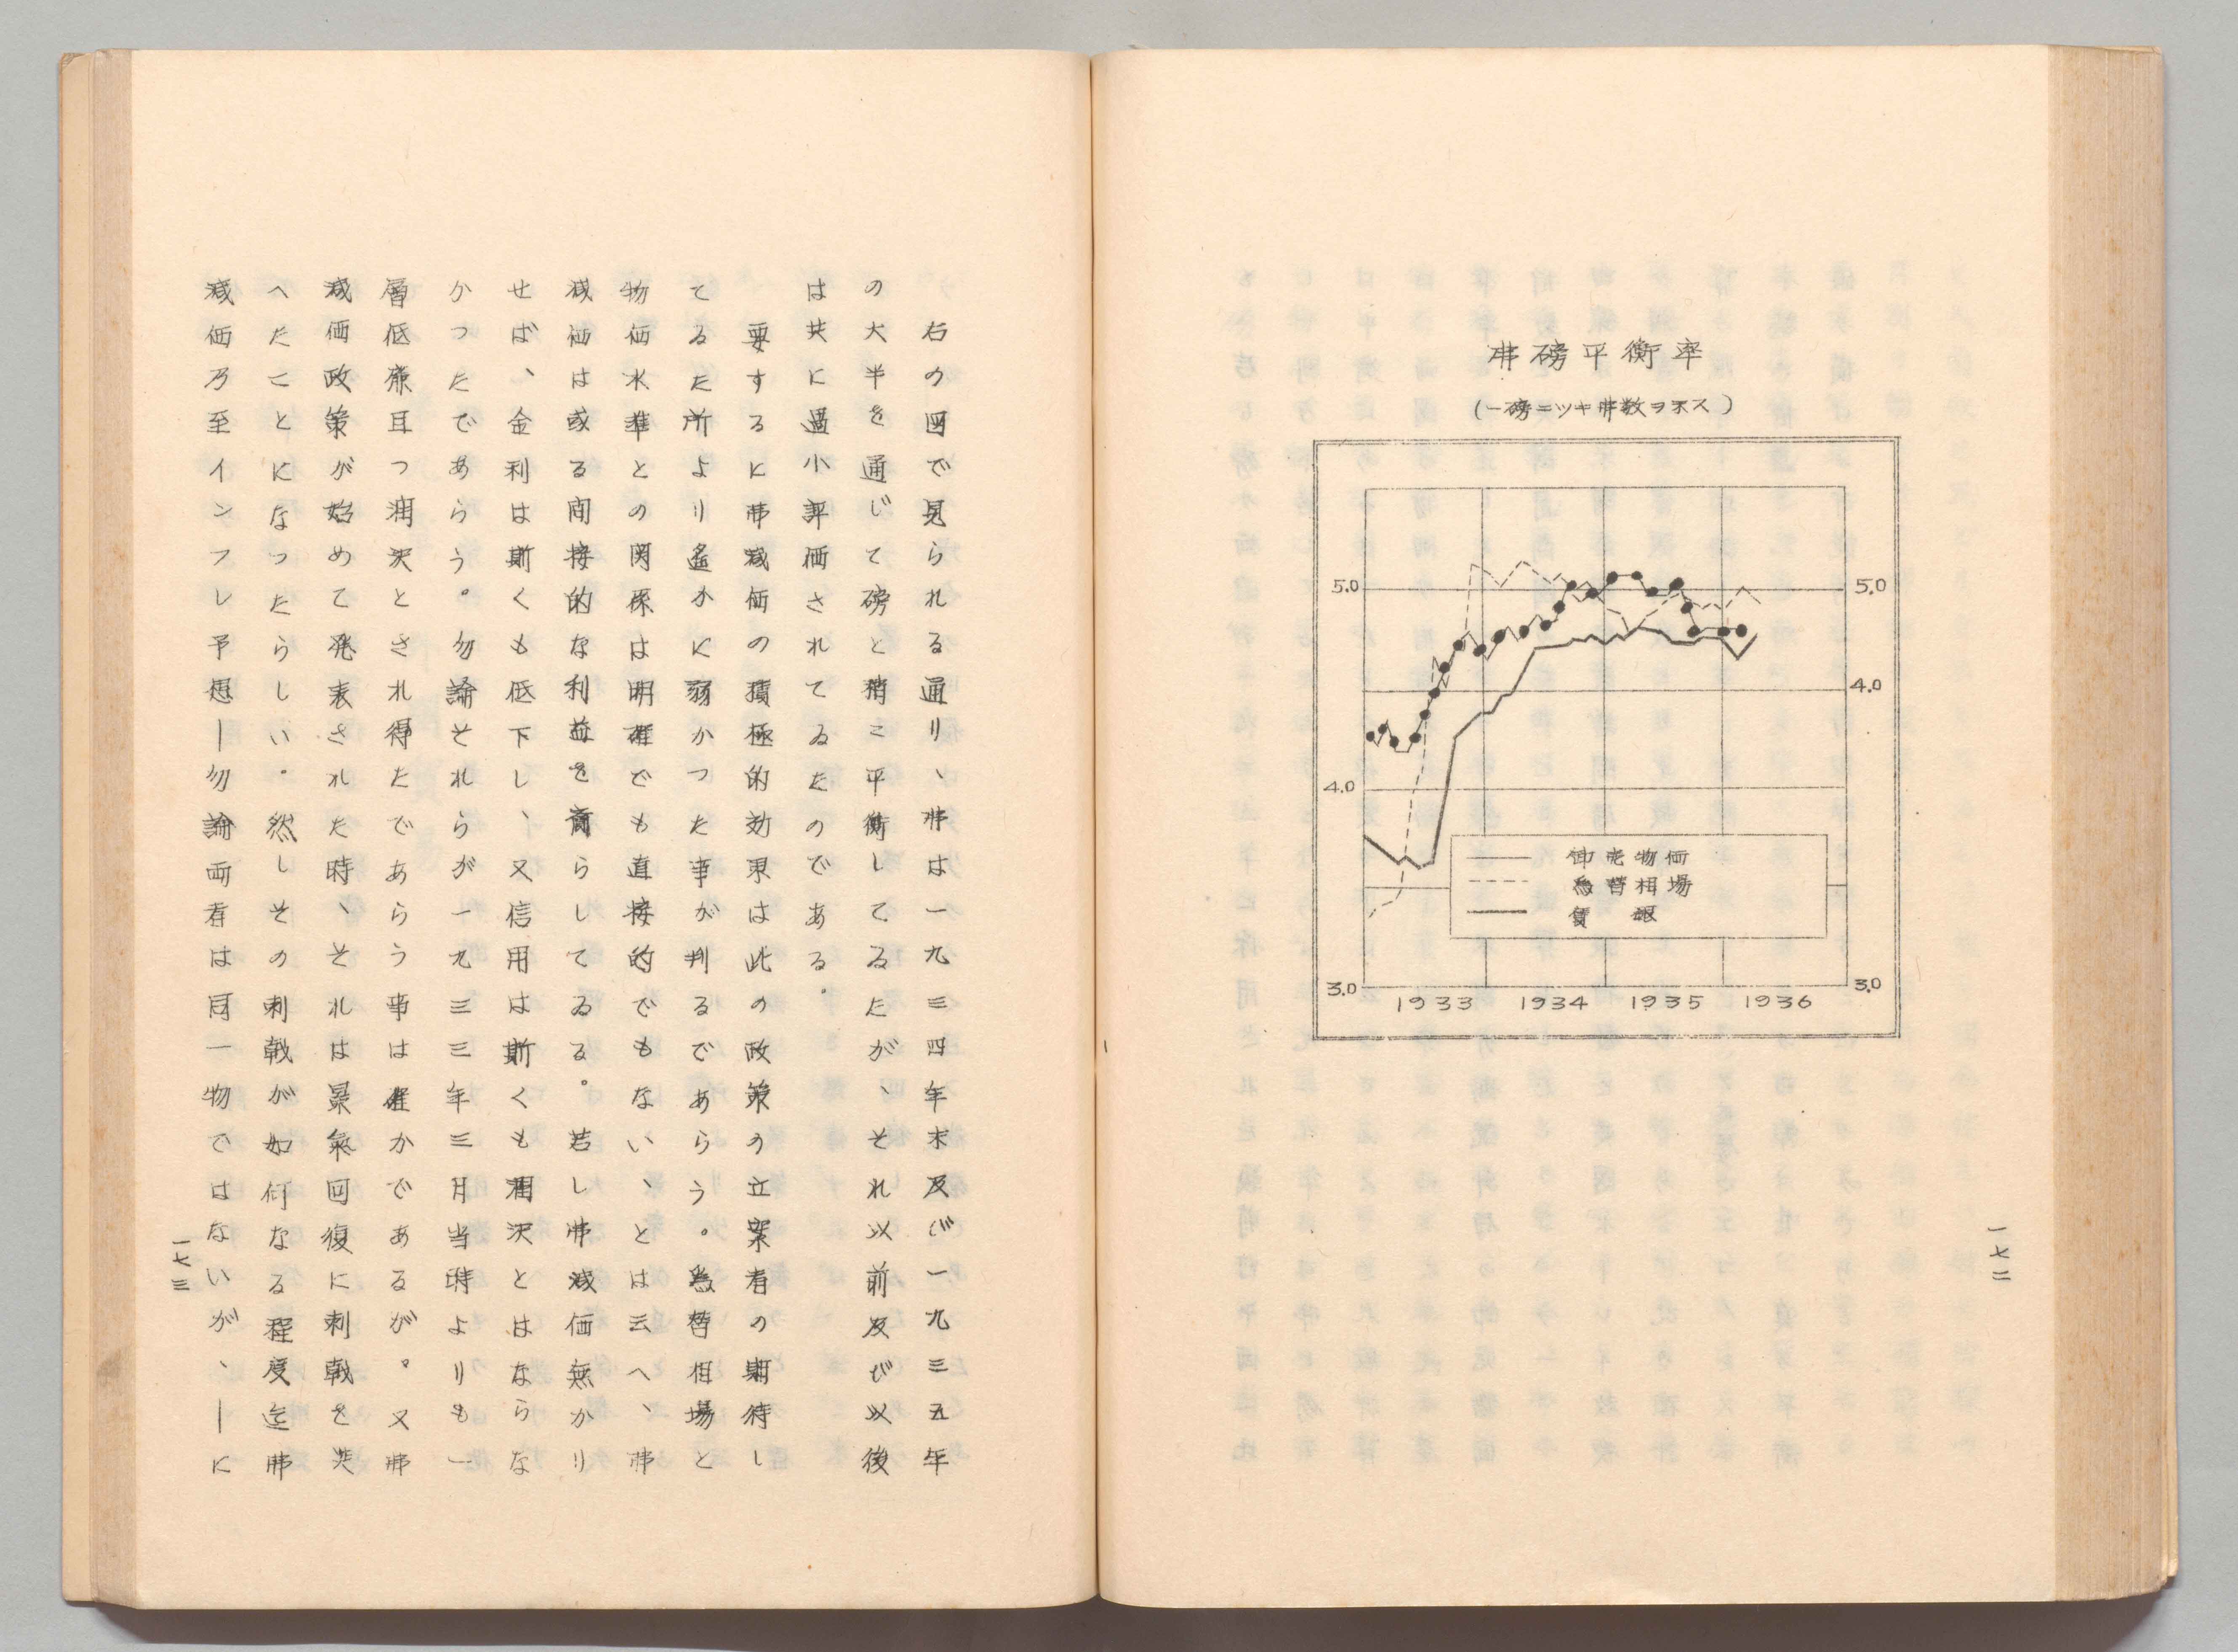 弗磅平衡率
(一磅ニツキ弗数ヲ示ス)
5.0
5.0
4.0
4.0
3.0
3.0
卸売物価
為替相場
賃銀
1933 1934 1935 1936
一七二
右の図で見られる通り、弗は一九三四年末及び一九三五年
の大半を通じて磅と稍々平衡してゐたが、それ以前及び以後
は共に過小評価されてゐたのである。
要するに弗減価の積極的効果は此の政策の立案者の期待し
てゐた所より遙かに弱かつた事が判るであらう。為替相場と
物価水準との関係は明確でも直接的でもない、とは云へ、弗
減価は或る間接的な利益を齎らしてゐる。若し弗減価無かり
せば、金利は斯くも低下し、又信用は斯くも潤沢とはならな
かつたであらう。勿論それらが一九三三年三月当時よりも一
層低廉且つ潤沢とされ得たであらう事は確かであるが。又弗
減価政策が始めて発表された時、それは景気回復に刺戟を与
へたことになつたらしい。然しその刺戟が如何なる程度迄弗
減価乃至インフレ予想―勿論両者は同一物ではないが、―に
一七三